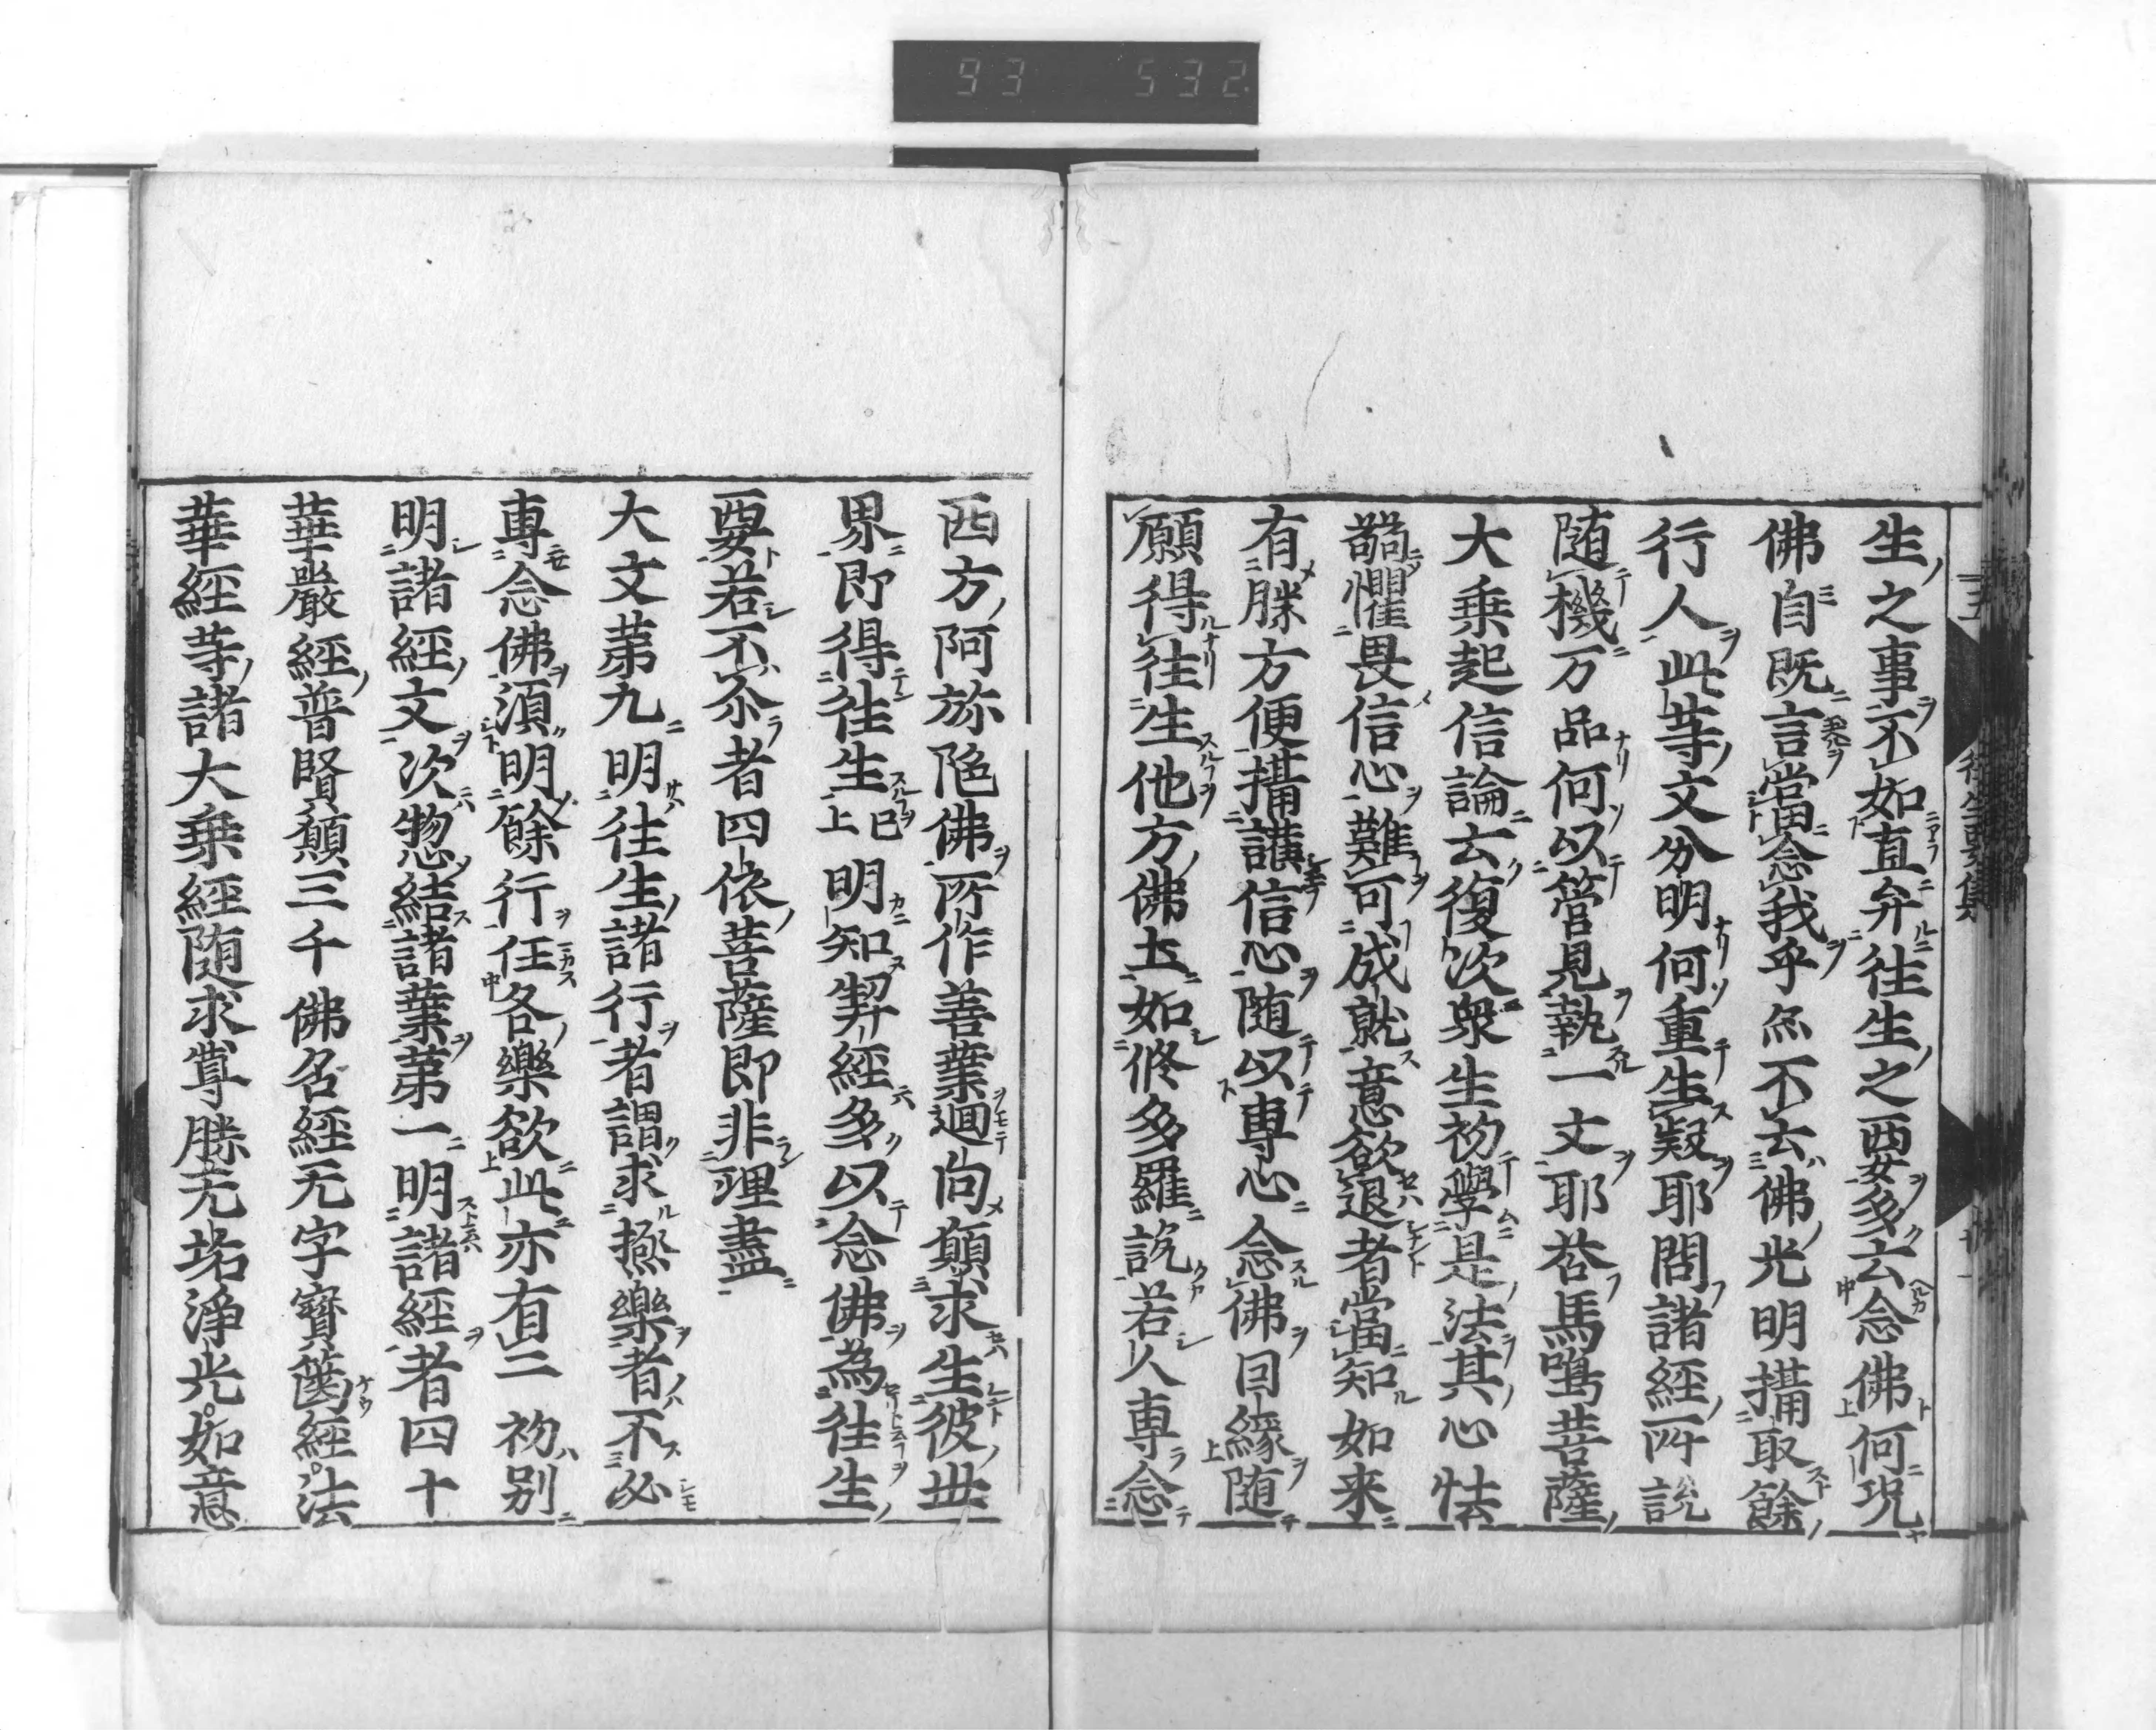 93 532
往生要集
生之事不如直弁往生之要多云念佛何況
佛自既言當念我乎亦不云佛光明攝取餘
行人此等文分明何重生疑耶問諸經所說
随機万品何以管見執一文耶答馬鳴菩薩
大乗起信論云復次衆生初學是法其心怯
弱懼畏信心難可成就意欲退者當知如来
有勝方便攝護信心随以專心念佛因緣随
願得往生他方佛土如修多羅説若人專念
西方阿弥陀佛所作善業迴向願求生彼世
界即得往生已上明知契經多以念佛為往生
要若不尒者四依菩薩即非理盡
大文第九明往生諸行者謂求極樂者不必
專念佛須明餘行任各樂欲此亦有二初別
明諸經文次惣結諸業第一明諸經者四十
華嚴經普賢願三千佛名經无字寳篋經法
華經等諸大乗經随求尊勝无垢淨光如意